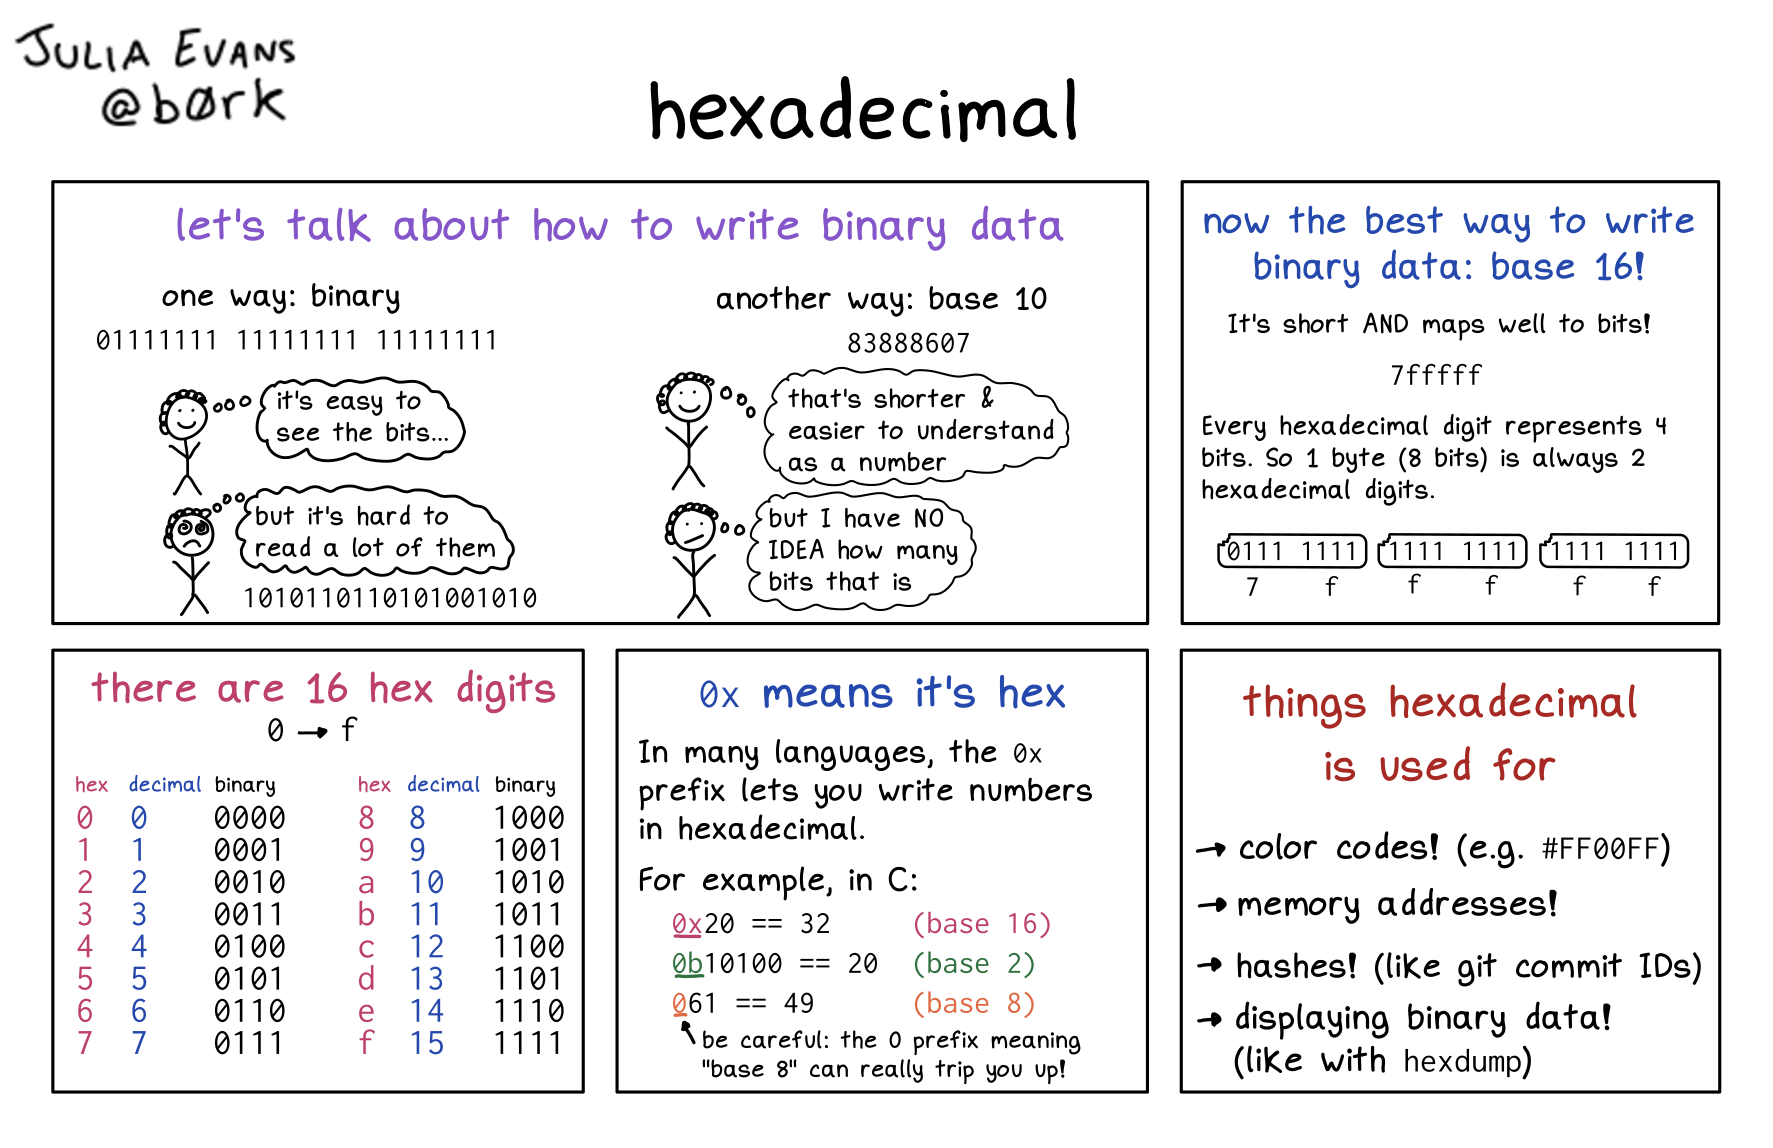 JULIA EVANS
@børk
hexadecimal
let's talk about how to write binary data
one way: binary
01111111 11111111 11111111
it's easy to
see the bits...
but it's hard to
read a lot of them
1010110110101001010
another way: base 10
83888607
that's shorter &
easier to understand
as a number
but I have NO
IDEA how many
bits that is
now the best way to write
binary data: base 16!
It's short AND maps well to bits!
7fffff
Every hexadecimal digit represents 4
bits. So 1 byte (8 bits) is always 2
hexadecimal digits.
0111 1111 1111 1111 1111 1111
7 f f f f f
there are 16 hex digits
0 → f
hex decimal binary hex decimal binary
0 0 0000 8 8 1000
1 1 0001 9 9 1001
2 2 0010 a 10 1010
3 3 0011 b 11 1011
4 4 0100 c 12 1100
5 5 0101 d 13 1101
6 6 0110 e 14 1110
7 7 0111 f 15 1111
0x means it's hex
In many languages, the 0x
prefix lets you write numbers
in hexadecimal.
For example, in C:
0x20 == 32 (base 16)
0b10100 == 20 (base 2)
061 == 49 (base 8)
be careful: the 0 prefix meaning
"base 8" can really trip you up!
things hexadecimal
is used for
→ color codes! (e.g. #FF00FF)
→ memory addresses!
→ hashes! (like git commit IDs)
→ displaying binary data!
(like with hexdump)